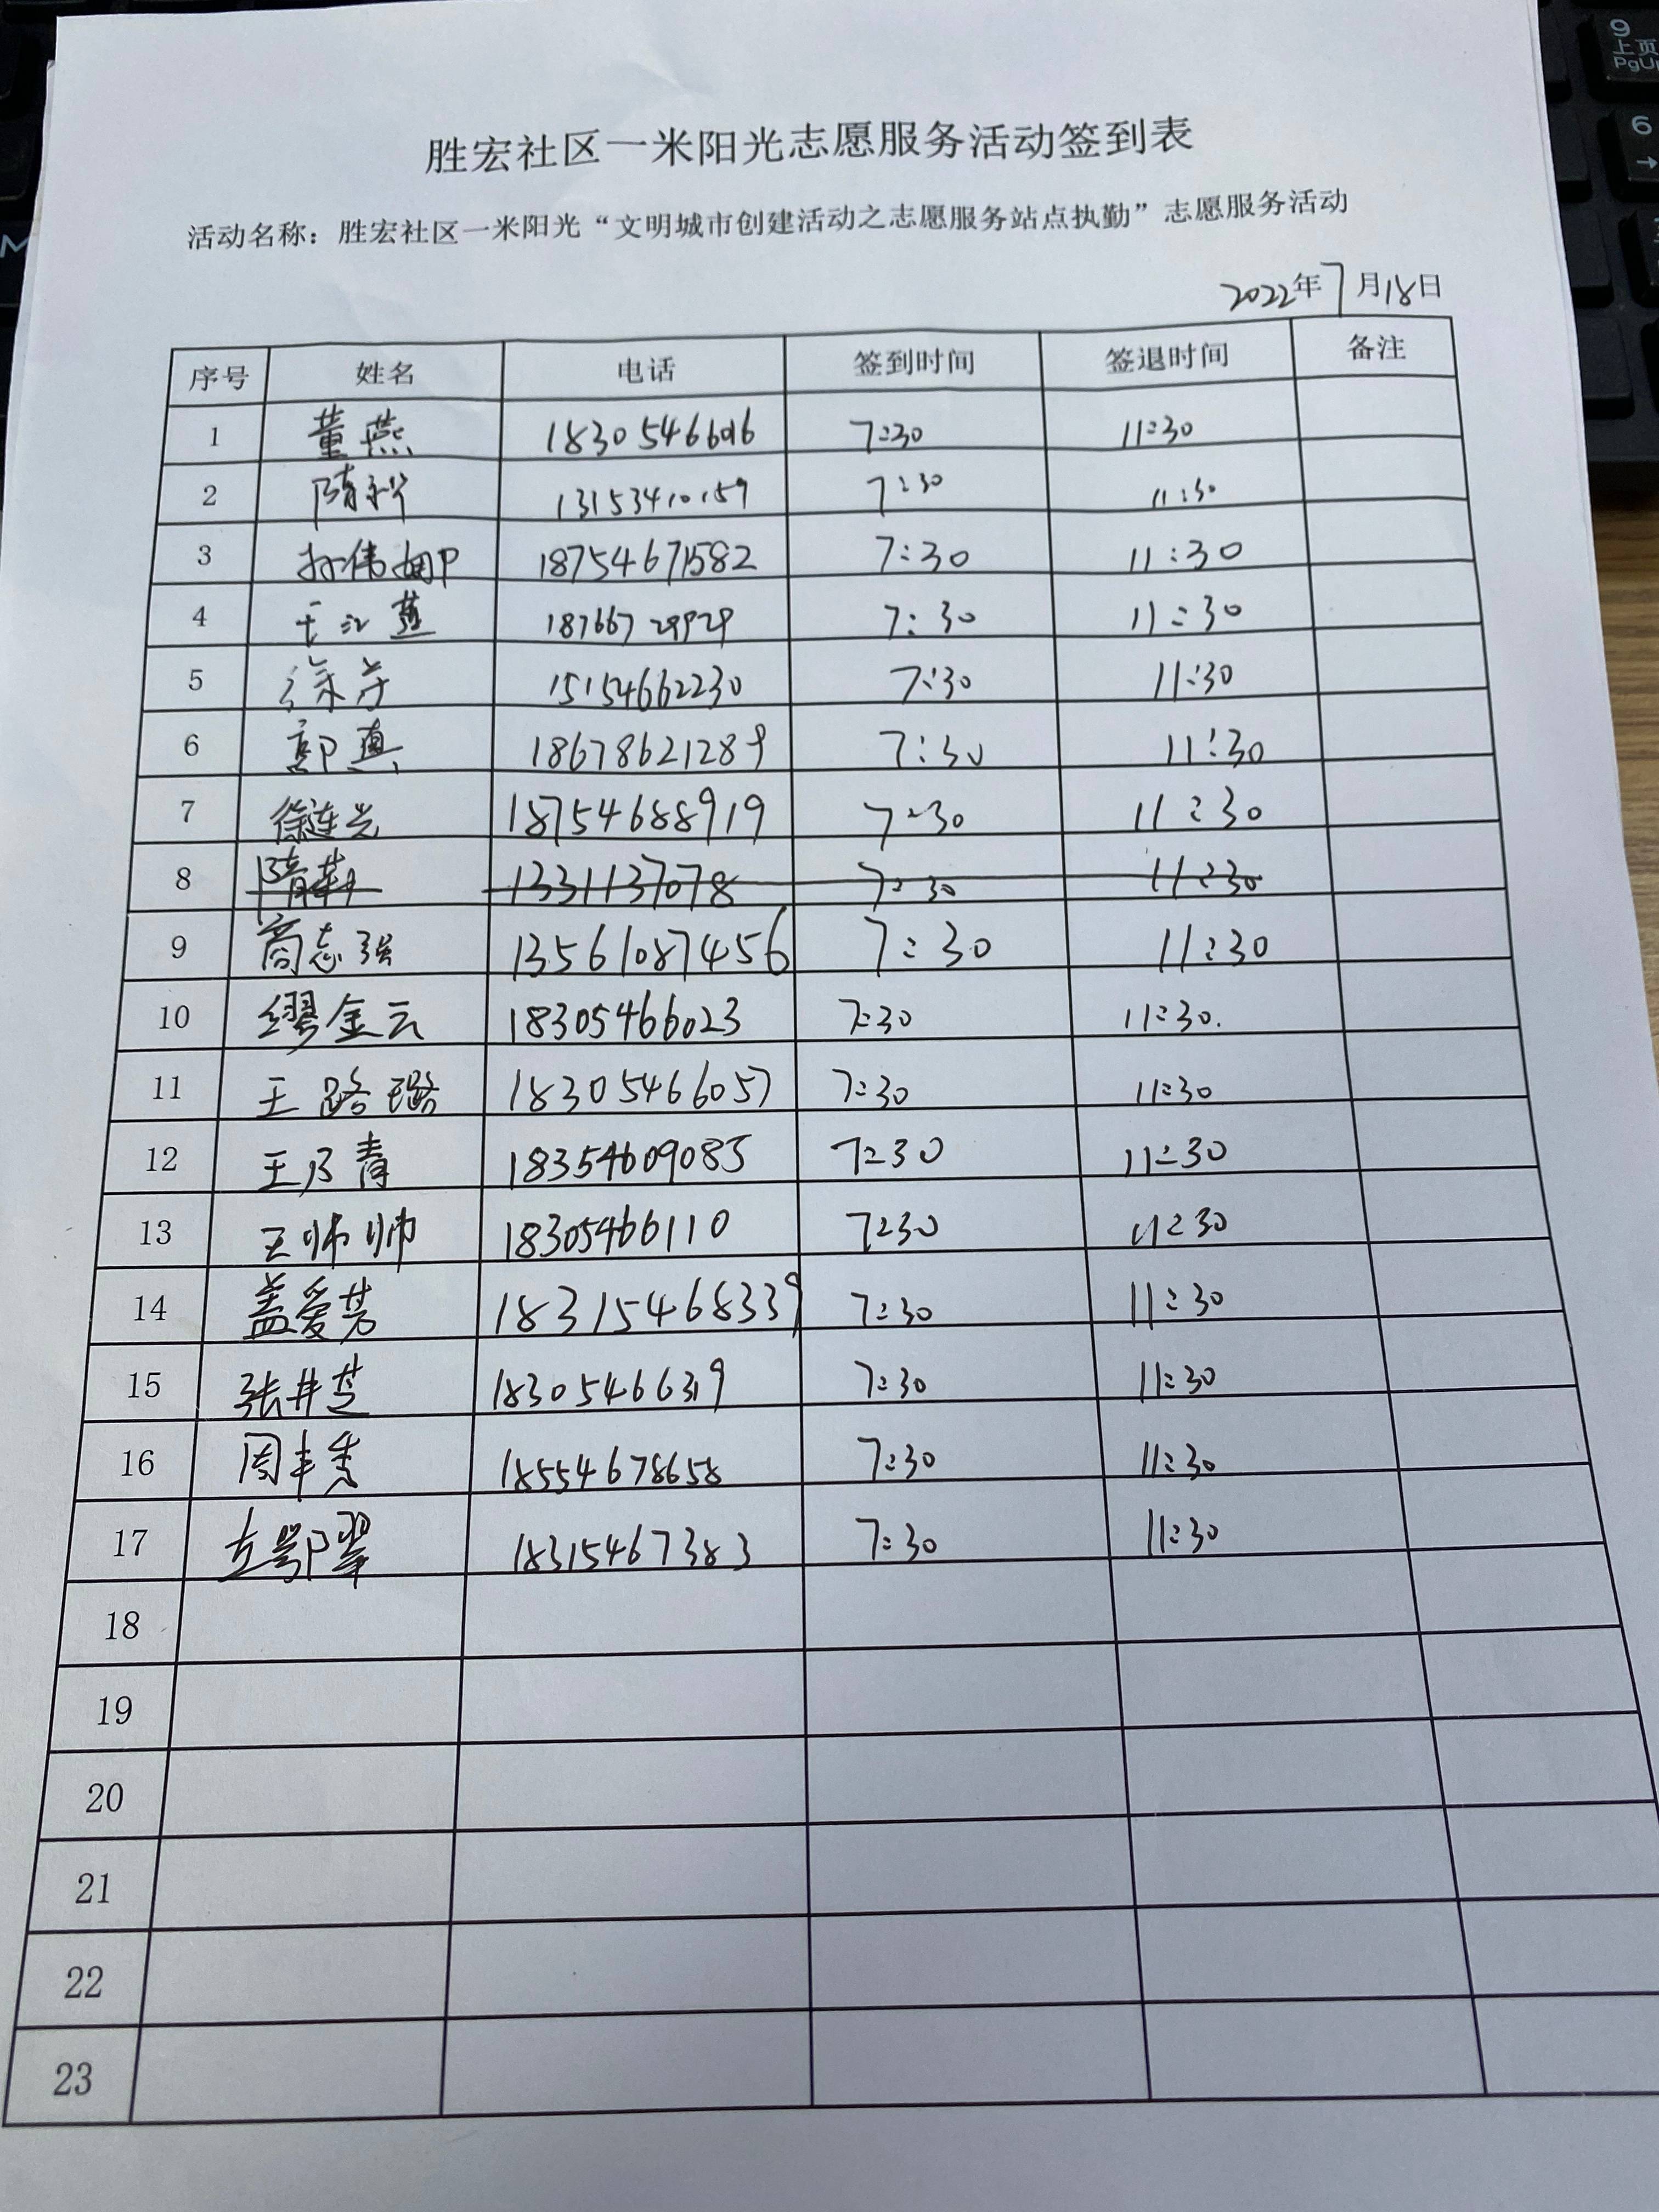 胜宏社区一米阳光志愿服务活动签到表
活动名称：胜宏社区一米阳光“文明城市创建活动之志愿服务站点执勤”志愿服务活动
2022年7月18日
序号 姓名 电话 签到时间 签退时间 备注
1 董燕 18305466016 7:30 11:30
2 13153410159 7:30 11:30
3 18754671582 7:30 11:30
4 18766729929 7:30 11:30
5 15154662230 7:30 11:30
6 18678621289 7:30 11:30
7 徐连光 18754688919 7:30 11:30
8 1331137078 7:30 11:30
9 商志强 13561087456 7:30 11:30
10 缪金云 18305466023 7:30 11:30.
11 王路璐 18305466057 7:30 11:30
12 王乃青 18354609085 7:30 11:30
13 王帅帅 18305466110 7:30 11:30
14 盖爱芳 18315468339 7:30 11:30
15 张井芝 18305466319 7:30 11:30
16 周丰秀 18554678658 7:30 11:30
17 18315467383 7:30 11:30
18
19
20
21
22
23
9
上页
PgU
6
→
M